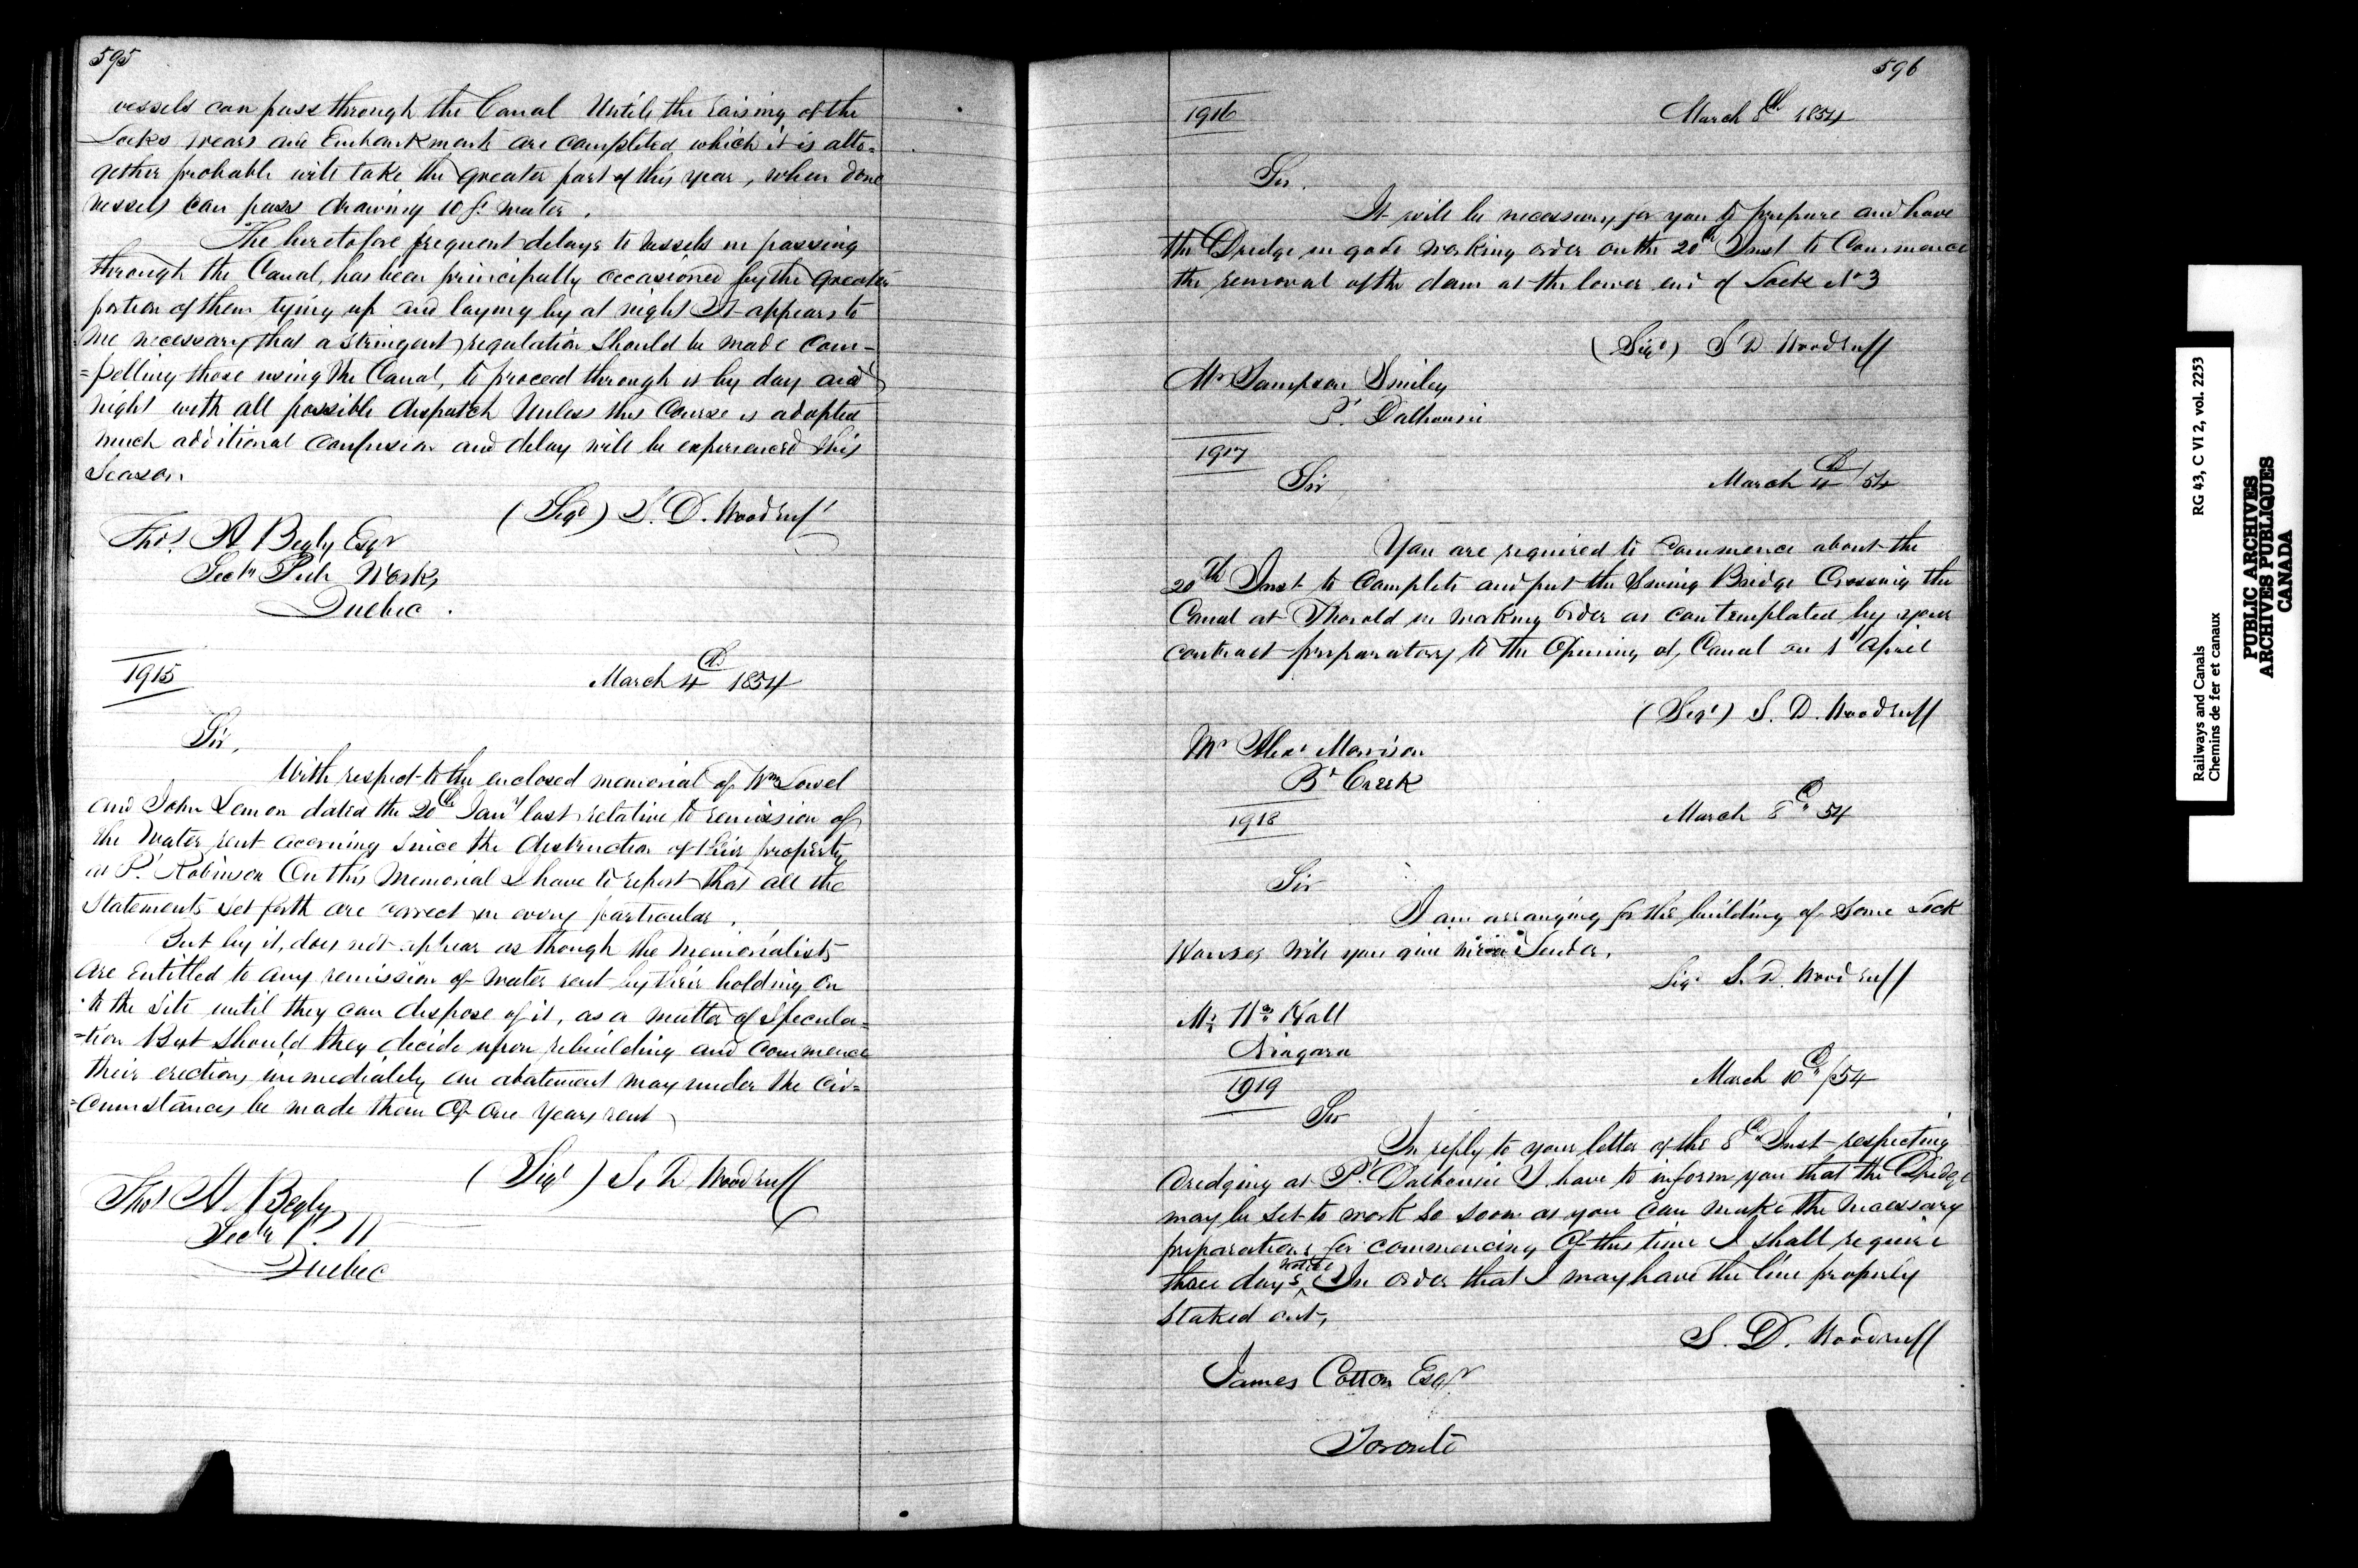 595
vessels can pass through the Canal Until the raising of the
Locks wears and Embankments are completed, which it is alto=
gether probable will take the greater part of this year, when done
vessels can pass drawing 10 ft water.
The heretofore frequent delays to vessels in passing
through the Canal, has been principally occasioned by the greater
portion of them tying up and laying by at night It appears to
me necessary that a stringent regulation should be made com-
=pelling those using the Canal, to proceed through it by day and
night with all possible dispatch Unless this Course is adopted
much additional confusion and delay will be experienced this
Season.
(Sigd) S. D. Woodruff
Thos A Begly Esqr
Secty Pub Works
Quebec.
1915
March 4th 1854
Sir,
With respect to the enclosed memorial of Wm Lowel
and John Lemon dated the 20th Jany last relative to remission of
the Water rent accruing Since the destruction of their property
at Pt Robinson On this Memorial I have to report that all the
Statements set forth are correct in every particular.
But by it, does not appear as though the Memorialists
are entitled to any remission of water rent by their holding on
to the site until they can dispose of it, as a matter of specula=
=tion But should they decide upon rebuilding and commence
their erections immediately an abatement may under the cir=
=cumstances be made them Of One Years rent
(Sigd) S. D Woodruff
Thos A. Begly
Secty P. W
Quebec
596
1916
March 8th 1854
Sir.
It will be necessary for you to prepare and have
the Dredge in good working order on the 20th Inst to Commence
the removal of the dam at the lower end of Lock No 3
(Sigd) S D Woodruff
Mr Sampson Smiley
Pt Dalhousie
1917
March 4th /54
Sir
You are required to commence about the
20th Inst to Complete and put the Swing Bridge Crossing the
Canal at Thorold in working order as contemplated by your
contract preparatory to the Opening of, Canal on 1st April
(Sigd) S. D. Woodruff
Mr Alexr Morrison
Bd Creek
1918
March 8th 54
Sir
I am arranging for the building of some Lock
Houses will you give me a Tender.
Sigd S. D. Woodruff
Mr Wm Hall
Niagara
1919
March 10th /54
Sir
In reply to your letter of the 8th Inst respecting
dredging at Pt Dalhousie I have to inform you that the Dredge
may be set to work so soon as you can make the necessary
preparations for commencing Of this time I shall require
three days notice In order that I may have the line properly
staked out,
S. D. Woodruff
James Cotton Esqr
Toronto
Railways and Canals
Chemins de fer et canaux
RG 43, C VI 2, vol. 2253
PUBLIC ARCHIVES
ARCHIVES PUBLIQUES
CANADA